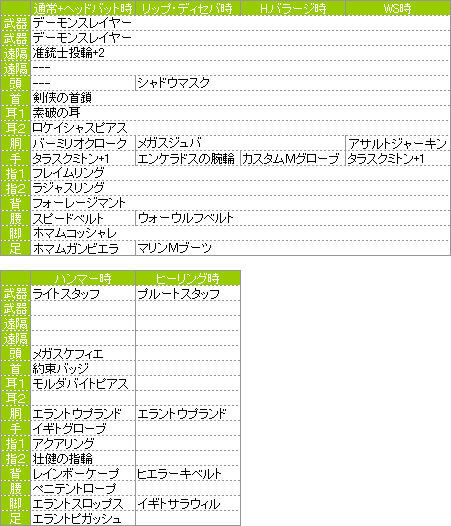 通常+ヘッドバット時 リップ・ディセバ時 H.バラージ時 WS時
武器 デーモンスレイヤー
武器 デーモンスレイヤー
遠隔 准銃士投輪+2
遠隔 ---
頭 --- シャドウマスク
首 剣侠の首鎖
耳1 素破の耳
耳2 ロケイシャスピアス
胴 バーミリオクローク メガスジュバ アサルトジャーキン
手 タラスクミトン+1 エンケラドスの腕輪 カスタムMグローブ タラスクミトン+1
指1 フレイムリング
指2 ラジャスリング
背 フォーレージマント
腰 スピードベルト ウォーウルフベルト
脚 ホマムコッシャレ
足 ホマムガンビエラ マリンMブーツ
ハンマー時 ヒーリング時
武器 ライトスタッフ プルートスタッフ
武器
遠隔
遠隔
頭 メガスケフィエ
首 約束バッジ
耳1 モルダバイトピアス
耳2
胴 エラントウプランド エラントウプランド
手 イギトグローブ
指1 アクアリング
指2 壮健の指輪
背 レインボーケープ ヒエラーキベルト
腰 ペニテントロープ
脚 エラントスロップス イギトサラウィル
足 エラントピガッシュ